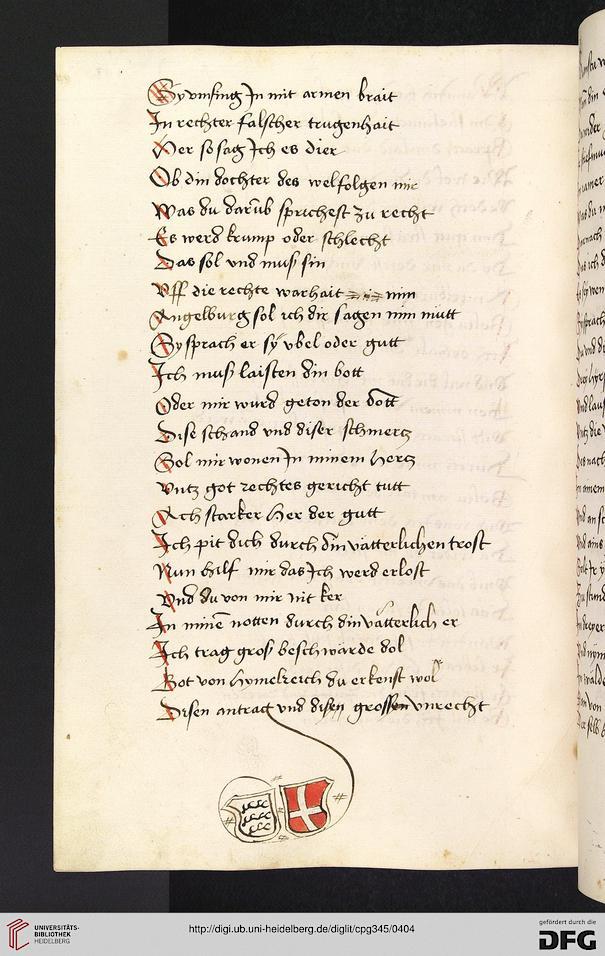 Sy vmfing Jn mit armen brait
Jn rechter falscher trugenhait
Der so sag Jch es dier
Ob din dochter des wel folgen mir
Was du darub sprichest zu recht
Es werd krump oder schlecht
Das sol vnd muß sin
Vff die rechte warhait min
Angelburg sol ich dir sagen min mutt
Sy sprach er sy vbel oder gutt
Jch muß laisten din bott
Oder mir wurd geton der dott
Dise schand vnd diser schmertz
Sol mir wonen Jn minem hertz
Vntz got rechtes gericht tutt
Ach starker her der gutt
Jch pit dich durch din vätterlichen trost
Nun hilf mir das Jch werd erlost
Vnd du von mir nit ker
Jn minē notten durch din vätterlich er
Jch trag groß beschwärde dol
Got von hymelreich du erkenst wol
Disen antrag vnd disen grossen vnrecht
UNIVERSITÄTS-
BIBLIOTHEK
HEIDELBERG
http://digi.ub.uni-heidelberg.de/diglit/cpg345/0404
gefördert durch die
DFG